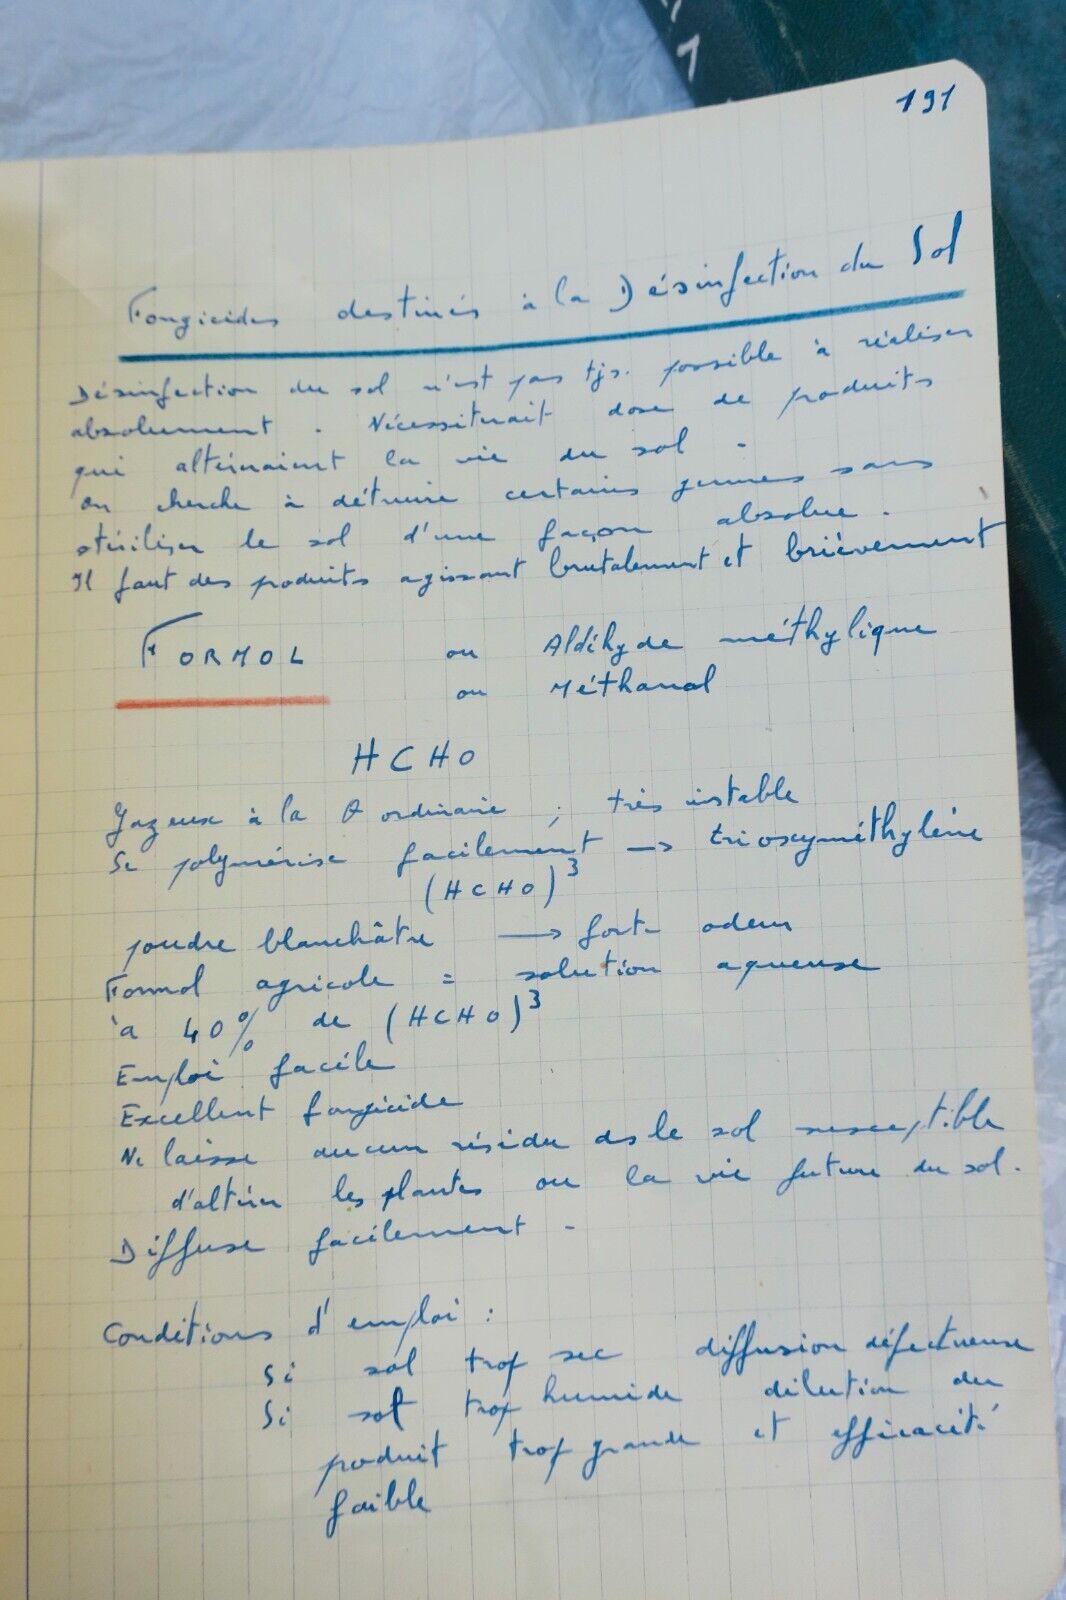 191
Fongicides destinés à la Désinfection du Sol
Désinfection du sol n'est pas tjs. possible à réaliser
absolument. Nécessiterait dose de produits
qui altèreraient la vie du sol.
On cherche à détruire certains germes sans
stériliser le sol d'une façon absolue.
Il faut des produits agissant brutalement et brièvement
FORMOL ou Aldéhyde méthylique
ou Méthanal
HCHO
Gazeux à la θ ordinaire ; très instable
Se polymérise facilement → trioxyméthylène
(HCHO)³
poudre blanchâtre → forte odeur
Formol agricole = solution aqueuse
à 40% de (HCHO)³
Emploi facile
Excellent fongicide
Ne laisse aucun résidu ds le sol susceptible
d'altérer les plantes ou la vie future du sol.
Diffuse facilement.
Conditions d'emploi :
Si sol trop sec diffusion défectueuse
Si sol trop humide dilution du
produit trop grande et efficacité
faible